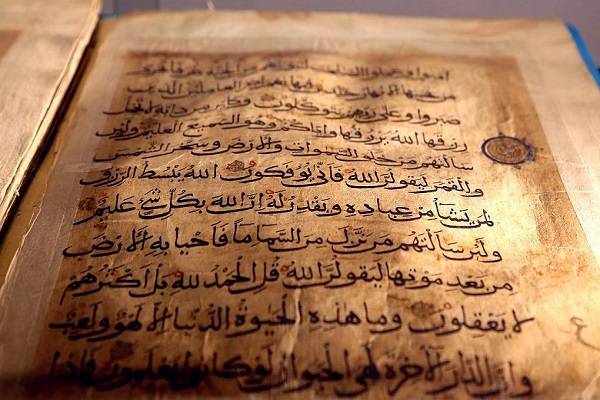 امنوا وعملوا الصالحات لنبوئنهم من الجنة غرفا تجري
من تحتها الانهار خالدين فيها نعم اجر العاملين الذين
صبروا وعلى ربهم يتوكلون وكاين من دابة لا تحمل
رزقها الله يرزقها واياكم وهو السميع العليم ولئن
سالتهم من خلق السموات والارض وسخر الشمس
والقمر ليقولن الله فانى يوفكون الله يبسط الرزق
لمن يشا من عباده ويقدر له ان الله بكل شي عليم
ولئن سالتهم من نزل من السما ما فاحيا به الارض
من بعد موتها ليقولن الله قل الحمد لله بل اكثرهم
لا يعقلون وما هذه الحيوة الدنيا الا لهو ولعب
وان الدار الاخرة لهي الحيوان لو كانوا يعلمون فاذا
ع